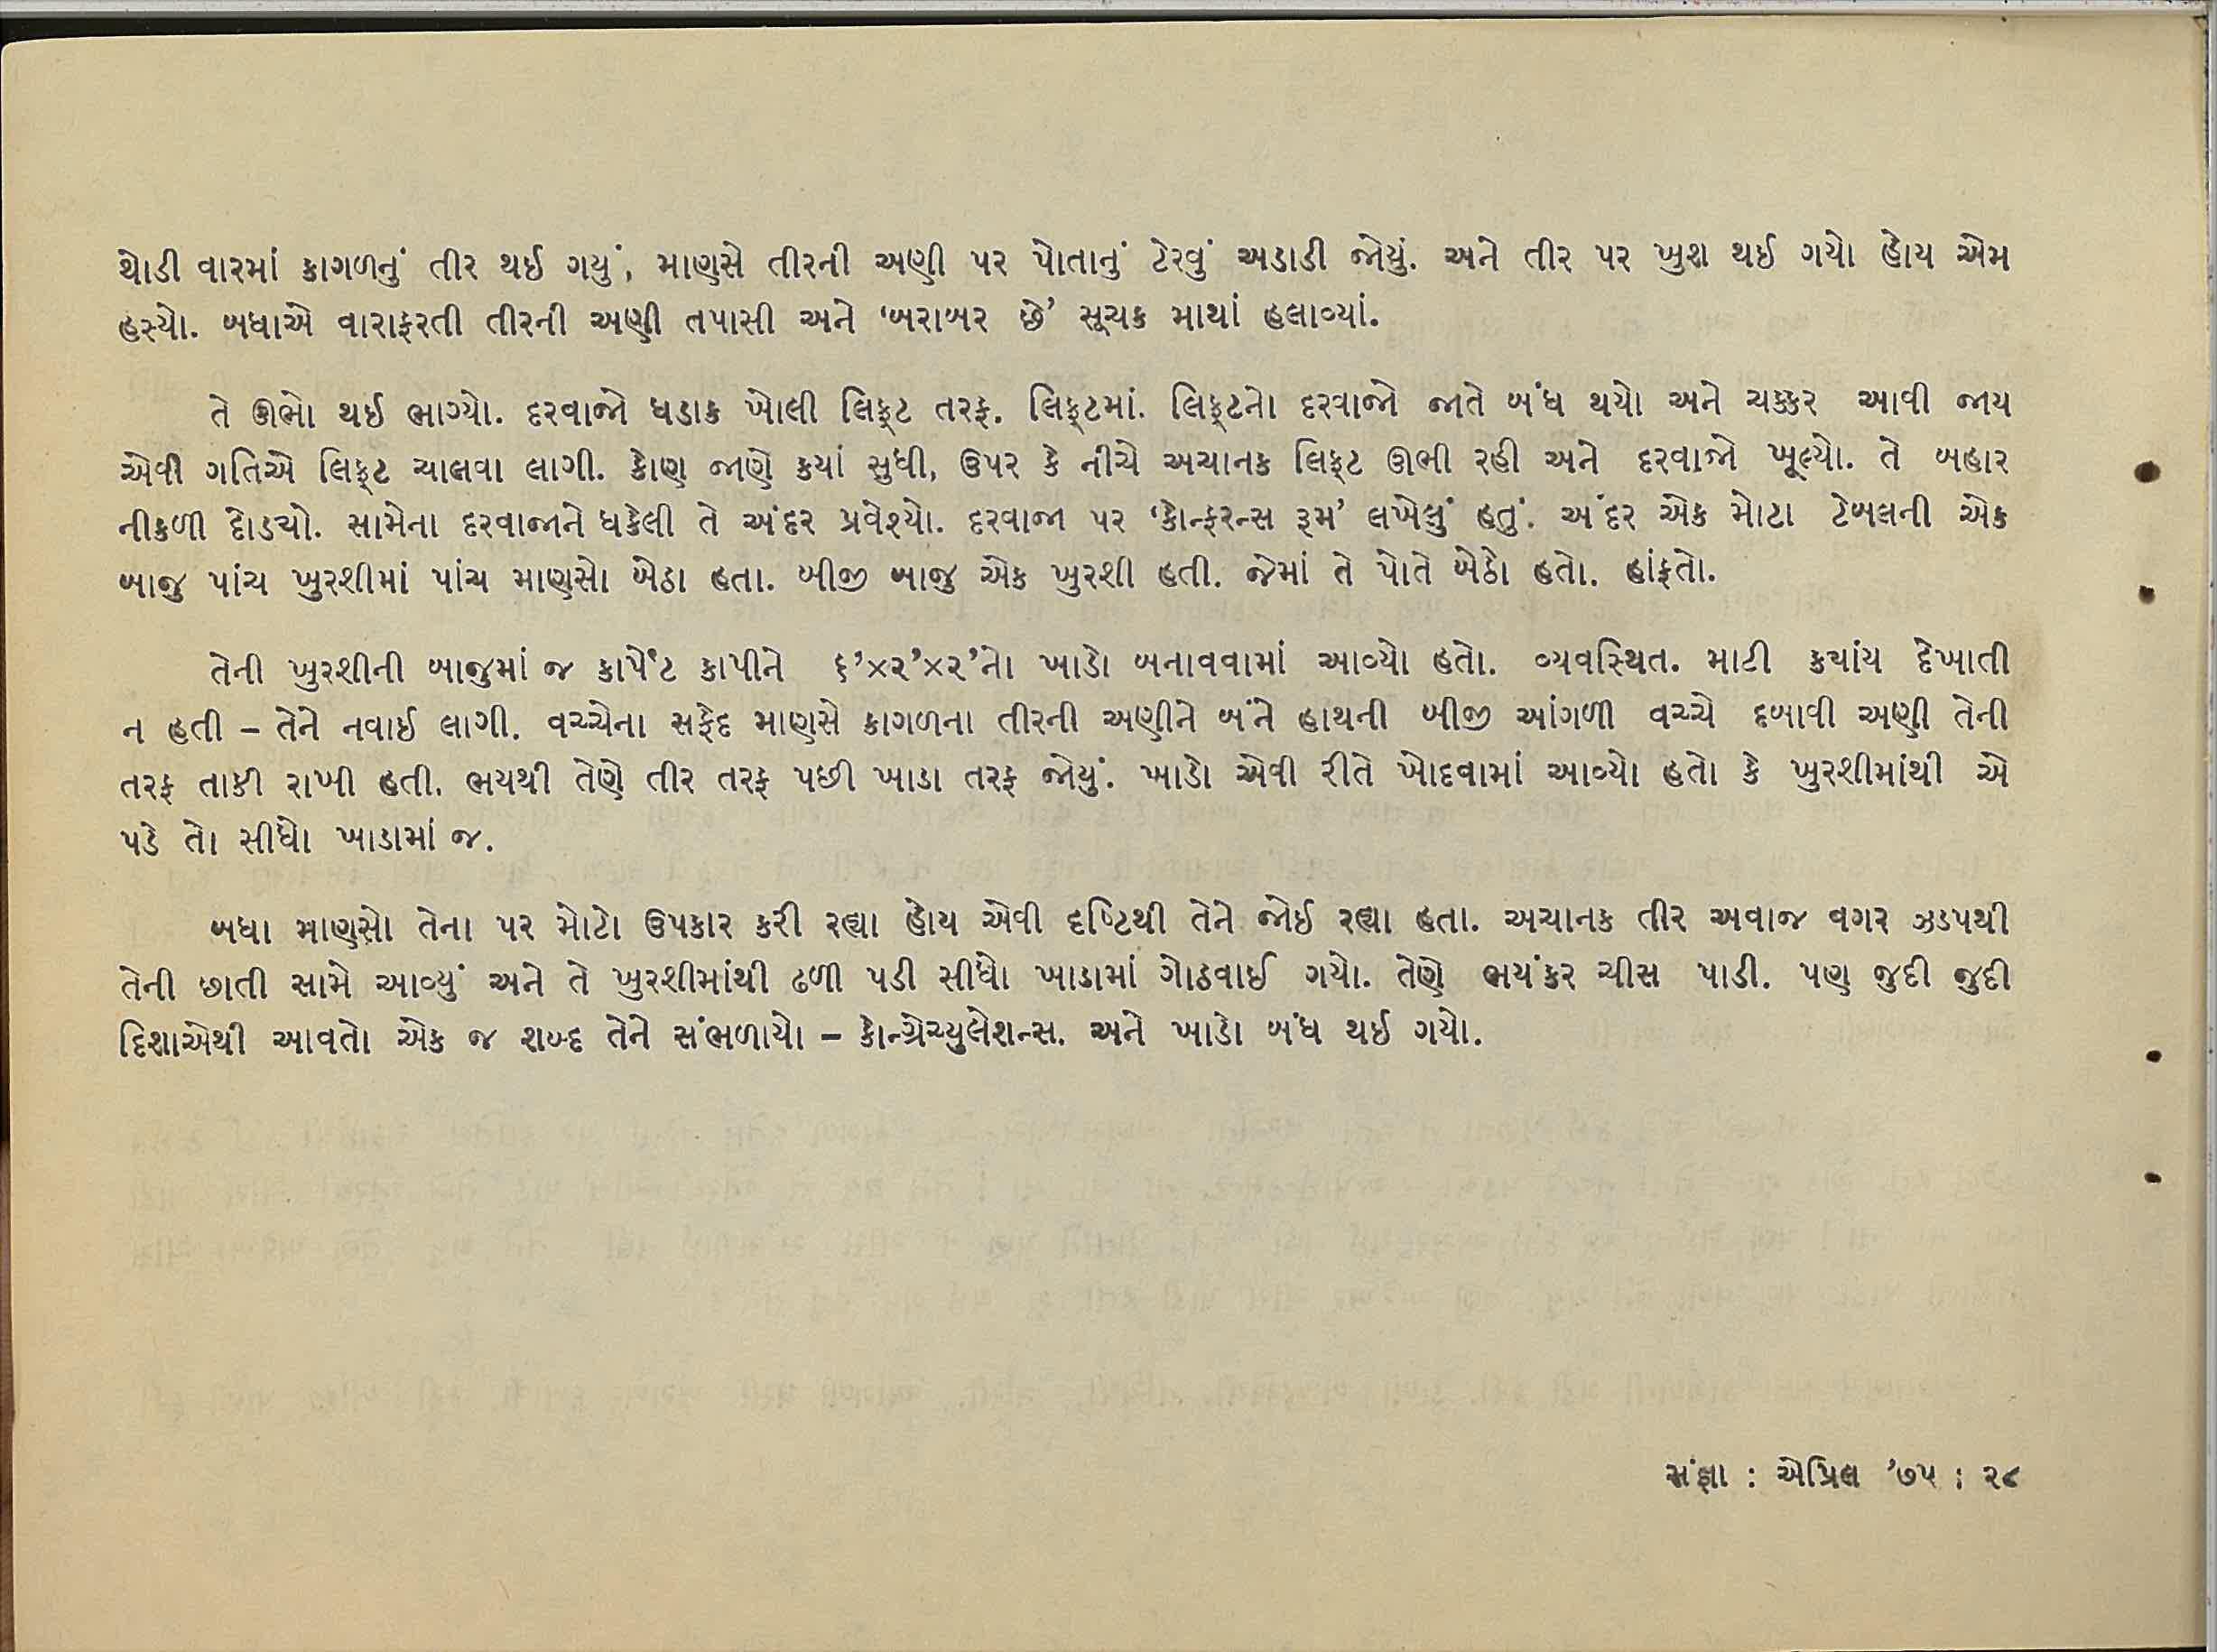 થોડી વારમાં કાગળનું તીર થઈ ગયું, માણસે તીરની અણી પર પોતાનું ટેરવું અડાડી જોયું. અને તીર પર ખુશ થઈ ગયો હોય એમ
હસ્યો. બધાએ વારાફરતી તીરની અણી તપાસી અને ‘બરાબર છે’ સૂચક માથાં હલાવ્યાં.
તે ઊભો થઈ ભાગ્યો. દરવાજો ધડાક ખોલી લિફ્ટ તરફ. લિફ્ટમાં. લિફ્ટનો દરવાજો જાતે બંધ થયો અને ચક્કર આવી જાય
એવી ગતિએ લિફ્ટ ચાલવા લાગી. કોણ જાણે કયાં સુધી, ઉપર કે નીચે અચાનક લિફ્ટ ઊભી રહી અને દરવાજો ખૂલ્યો. તે બહાર
નીકળી દોડયો. સામેના દરવાજાને ધકેલી તે અંદર પ્રવેશ્યો. દરવાજા પર ‘કોન્ફરન્સ રૂમ’ લખેલું હતું. અંદર એક મોટા ટેબલની એક
બાજુ પાંચ ખુરશીમાં પાંચ માણસો બેઠા હતા. બીજી બાજુ એક ખુરશી હતી. જેમાં તે પોતે બેઠો હતો. હાંફતો.
તેની ખુરશીની બાજુમાં જ કાર્પેટ કાપીને ૬’×૨’×૨’નો ખાડો બનાવવામાં આવ્યો હતો. વ્યવસ્થિત. માટી કયાંય દેખાતી
ન હતી – તેને નવાઈ લાગી. વચ્ચેના સફેદ માણસે કાગળના તીરની અણીને બંને હાથની બીજી આંગળી વચ્ચે દબાવી અણી તેની
તરફ તાકી રાખી હતી. ભયથી તેણે તીર તરફ પછી ખાડા તરફ જોયું. ખાડો એવી રીતે ખોદવામાં આવ્યો હતો કે ખુરશીમાંથી એ
પડે તો સીધો ખાડામાં જ.
બધા માણસો તેના પર મોટો ઉપકાર કરી રહ્યા હોય એવી દૃષ્ટિથી તેને જોઈ રહ્યા હતા. અચાનક તીર અવાજ વગર ઝડપથી
તેની છાતી સામે આવ્યું અને તે ખુરશીમાંથી ઢળી પડી સીધો ખાડામાં ગોઠવાઈ ગયો. તેણે ભયંકર ચીસ પાડી. પણ જુદી જુદી
દિશાએથી આવતો એક જ શબ્દ તેને સંભળાયો – કોન્ગ્રેચ્યુલેશન્સ. અને ખાડો બંધ થઈ ગયો.
સંજ્ઞા : એપ્રિલ ’૭૫ : ૨૮